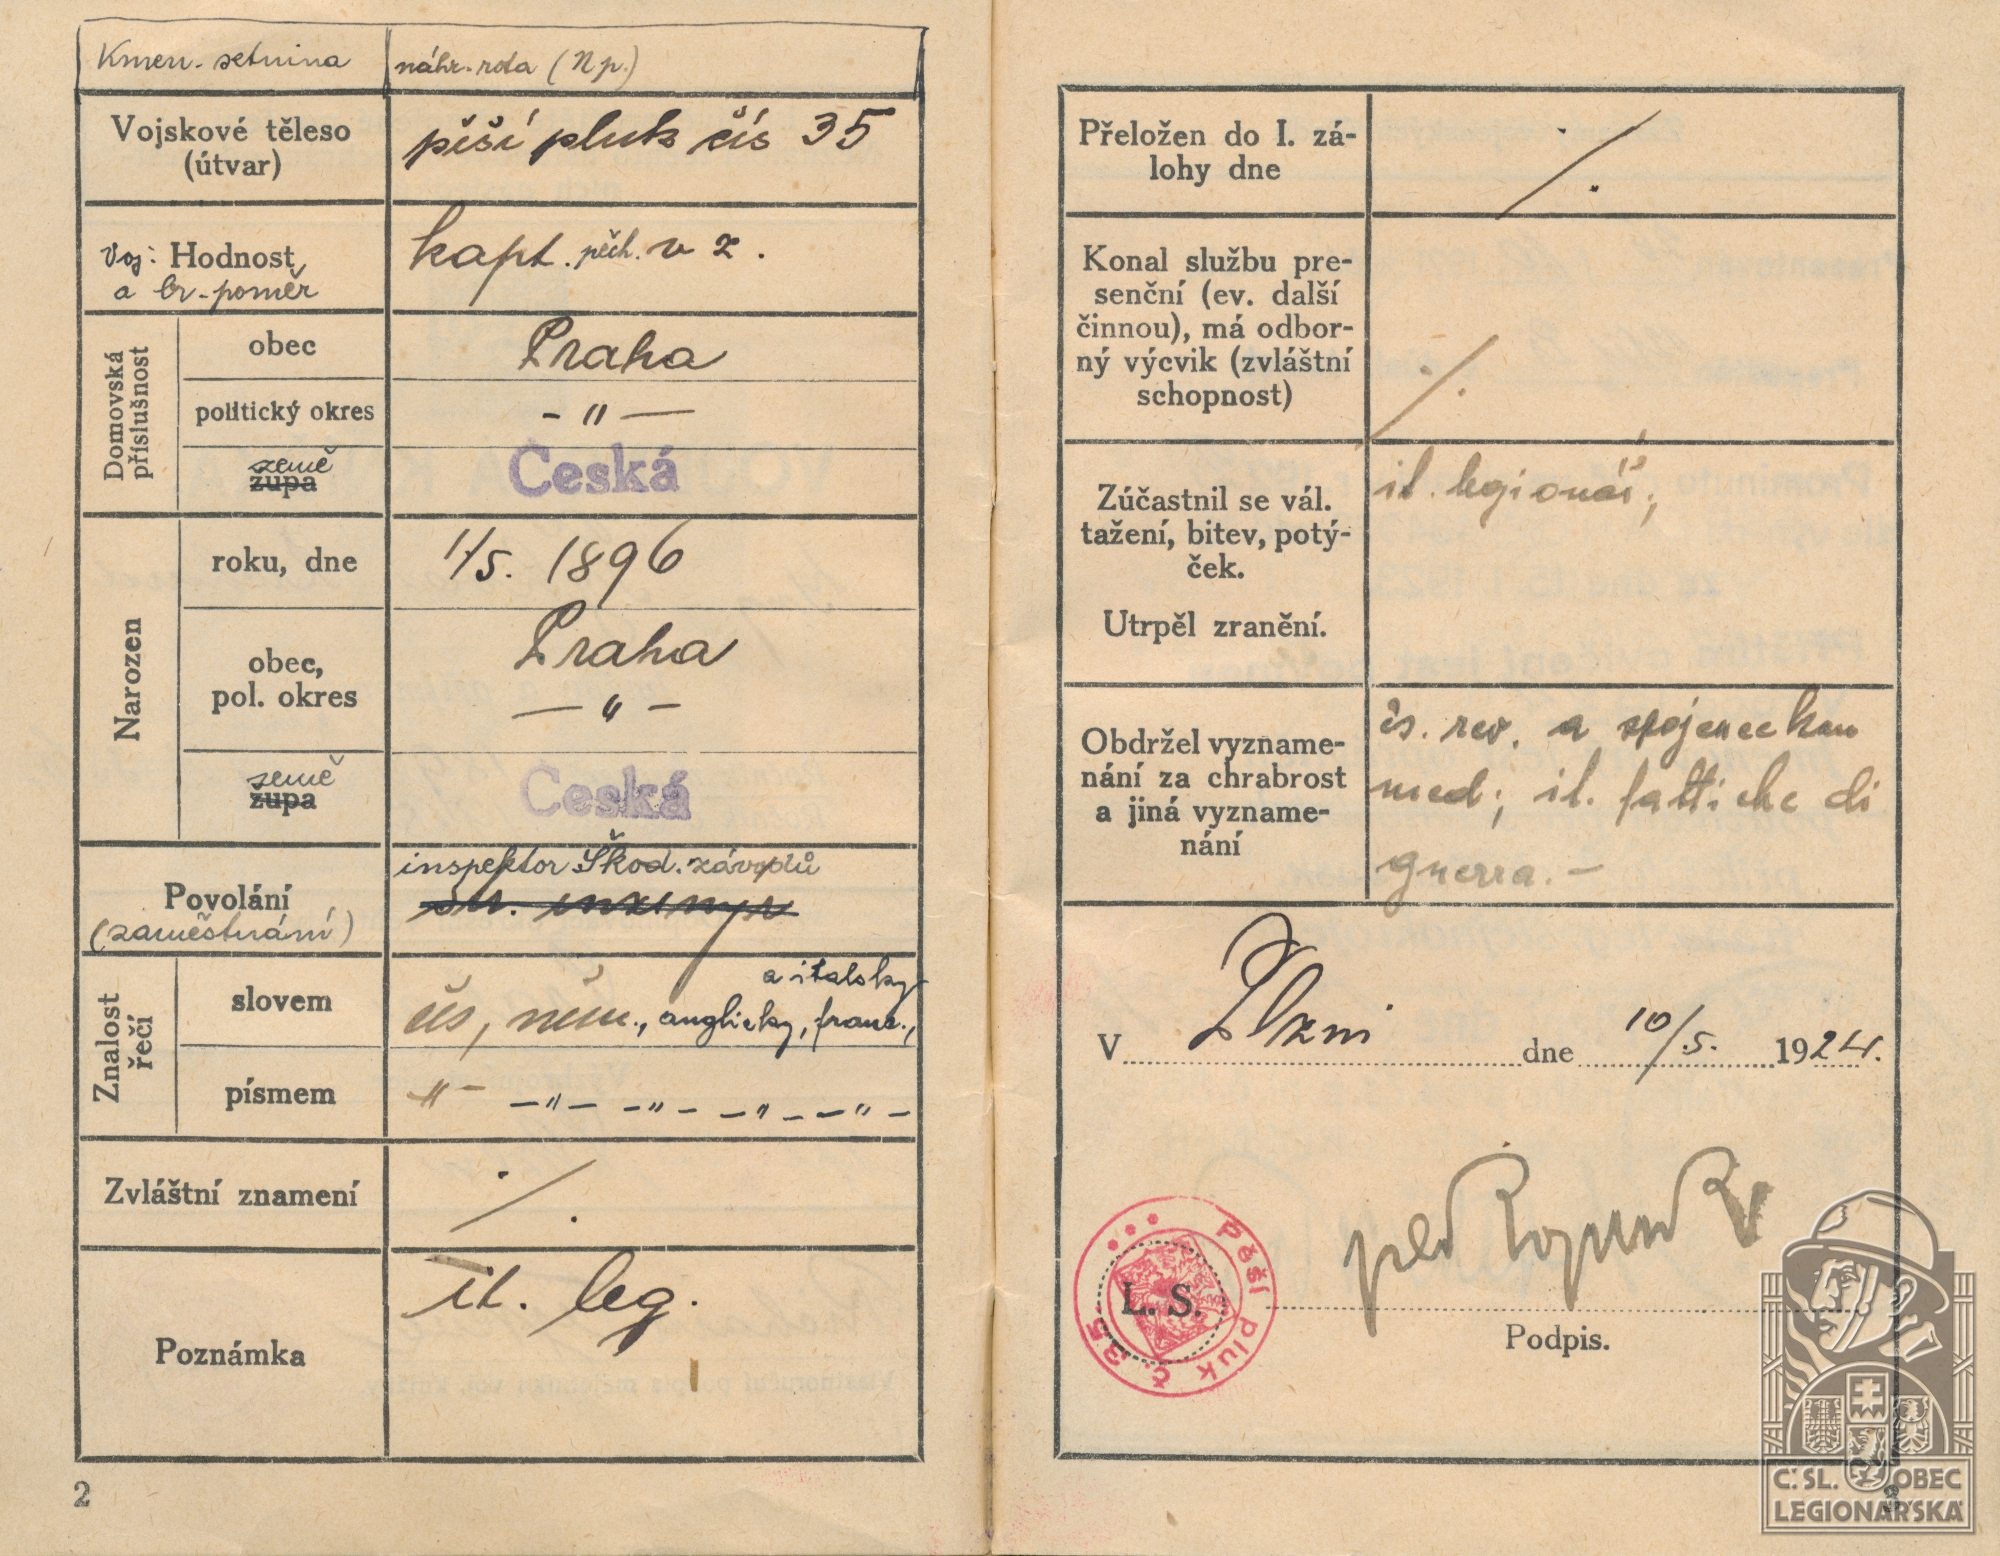 Kmen. setnina
náhr. rota (Np.)
Vojskové těleso
(útvar)
pěší pluk čís 35
Voj: Hodnost
a br. poměr
kapt. pěch. v z.
Domovská
příslušnost
obec
Praha
politický okres
- " -
země
župa
Česká
Narozen
roku, dne
1/5. 1896
obec,
pol. okres
Praha
- " -
země
župa
Česká
Povolání
(zaměstnání)
inspektor Škod. závodů
Znalost
řečí
slovem
a italsky
čes, něm., anglicky, franc.,
písmem
" - - " - - " - - " - - " -
Zvláštní znamení
./.
Poznámka
it. leg.
2
Přeložen do I. zá-
lohy dne
./.
Konal službu pre-
senční (ev. další
činnou), má odbor-
ný výcvik (zvláštní
schopnost)
./.
Zúčastnil se vál.
tažení, bitev, potý-
ček.
Utrpěl zranění.
it. legionář;
Obdržel vyzname-
nání za chrabrost
a jiná vyzname-
nání
čs. rev. a spojeneckou
med; it. fattiche di
guerra. -
V Plzni dne 10/5. 1924.
Pěší pluk č. 35
L. S.
Podpis.
Č. SL. OBEC
LEGIONÁŘSKÁ